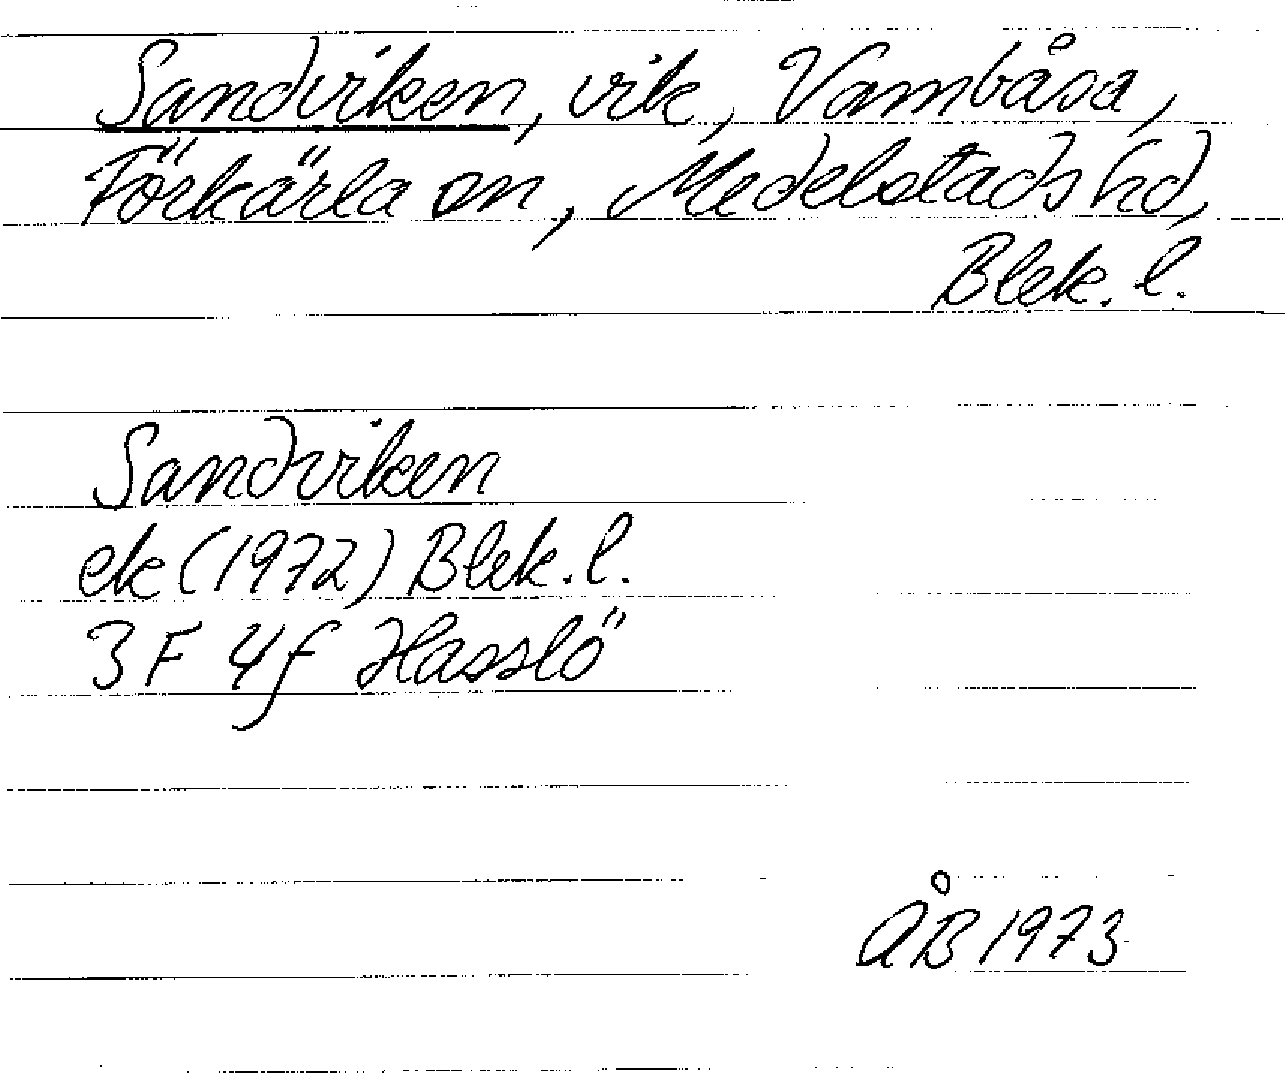 Sandviken, vik, Vambåsa,
Förkärla sn, Medelstads hd,
Blek. l.
Sandviken
ek (1972) Blek. l.
3 F 4f Hasslö
ÅB 1973